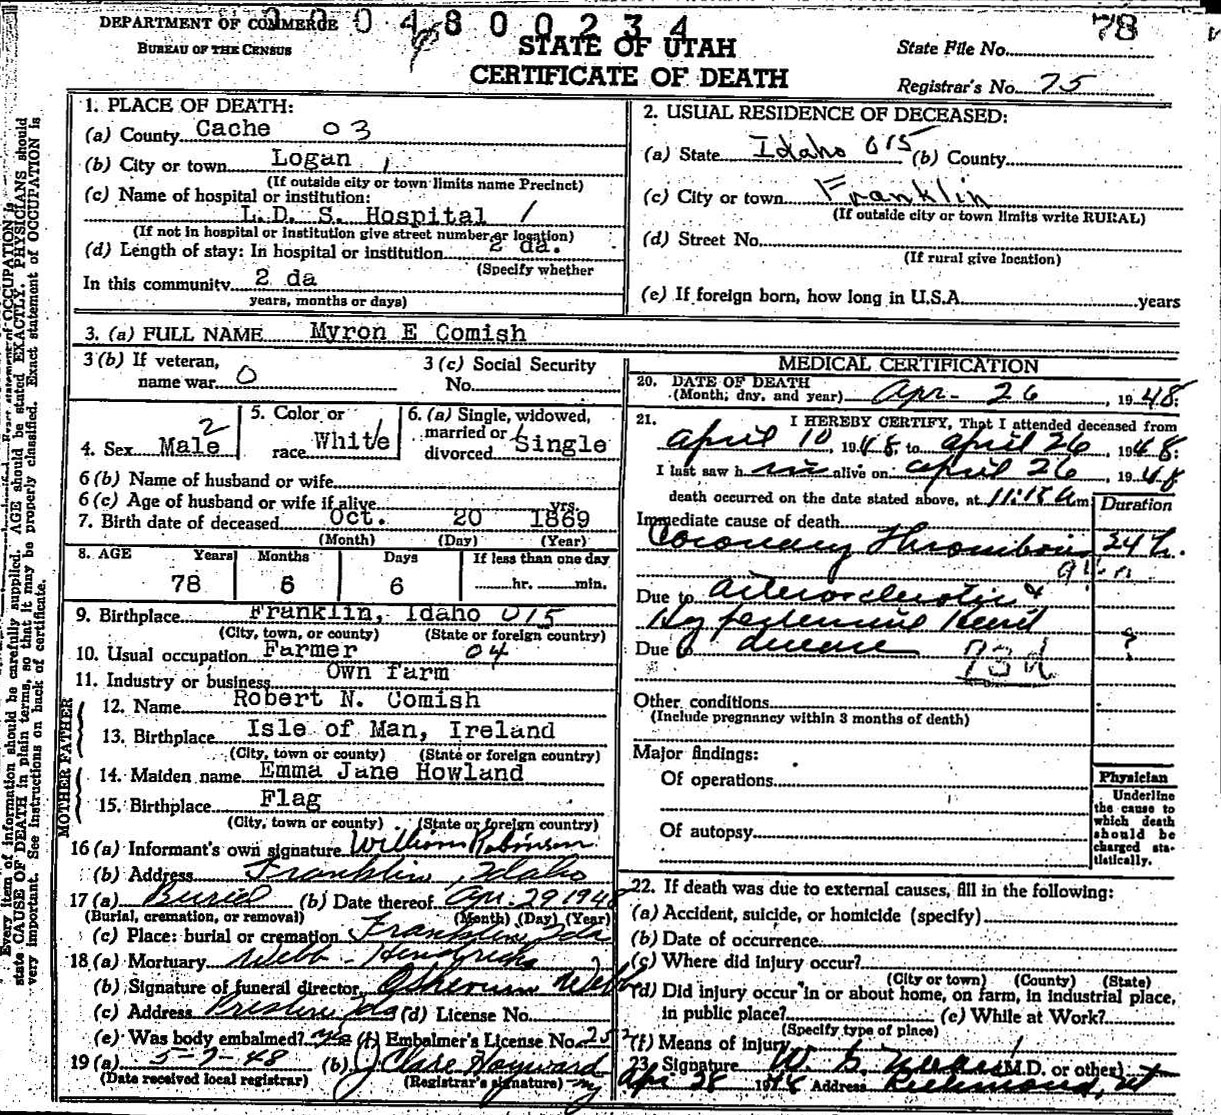 DEPARTMENT OF COMMERCE
BUREAU OF THE CENSUS
04800234
STATE OF UTAH
CERTIFICATE OF DEATH
78
State File No.
Registrar's No. 75
1. PLACE OF DEATH:
(a) County Cache 03
(b) City or town Logan
(If outside city or town limits name Precinct)
(c) Name of hospital or institution:
L.D. S. Hospital 1
(If not in hospital or institution give street number or location)
(d) Length of stay: In hospital or institution 2 da.
(Specify whether
In this community 2 da
years, months or days)
2. USUAL RESIDENCE OF DECEASED:
(a) State Idaho 015 (b) County
(c) City or town Franklin
(If outside city or town limits write RURAL)
(d) Street No.
(If rural give location)
(e) If foreign born, how long in U.S.A. years
3. (a) FULL NAME Myron E Comish
3 (b) If veteran,
name war 0
3 (c) Social Security
No.
4. Sex Male 2
5. Color or
race White
6. (a) Single, widowed,
married or
divorced Single
6 (b) Name of husband or wife
6 (c) Age of husband or wife if alive yrs.
7. Birth date of deceased Oct. 20 1869
(Month) (Day) (Year)
8. AGE Years Months Days If less than one day
78 6 6 hr. min.
9. Birthplace Franklin, Idaho 015
(City, town, or county) (State or foreign country)
10. Usual occupation Farmer 04
11. Industry or business Own farm
FATHER
12. Name Robert N. Comish
13. Birthplace Isle of Man, Ireland
(City, town or county) (State or foreign country)
MOTHER
14. Maiden name Emma Jane Howland
15. Birthplace Flag
(City, town or county) (State or foreign country)
16 (a) Informant's own signature William Robinson
(b) Address Franklin, Idaho
17 (a) Burial (b) Date thereof Apr. 29 1948
(Burial, cremation, or removal) (Month) (Day) (Year)
(c) Place: burial or cremation Franklin, Ida
18 (a) Mortuary Webb - Hendricks
(b) Signature of funeral director Webb
(c) Address Preston Ida (d) License No.
(e) Was body embalmed? Yes (f) Embalmer's License No. 252
19 (a) 5-7-48 (b) J Clare Hayward
(Date received local registrar) (Registrar's signature)
MEDICAL CERTIFICATION
20. DATE OF DEATH
(Month, day, and year) Apr- 26, 1948.
21. I HEREBY CERTIFY, That I attended deceased from
April 10, 1948, to April 26, 1948.
I last saw him alive on April 26, 1948
death occurred on the date stated above, at 11:18 a m
Duration
Immediate cause of death
Coronary Thrombosis 24 h.
Due to arteriosclerotic &
Hypertensive Heart
Due to disease ?
93d
Other conditions
(Include pregnancy within 3 months of death)
Major findings:
Of operations
Of autopsy
Physician
Underline
the cause to
which death
should be
charged sta-
tistically.
22. If death was due to external causes, fill in the following:
(a) Accident, suicide, or homicide (specify)
(b) Date of occurrence
(c) Where did injury occur?
(City or town) (County) (State)
(d) Did injury occur in or about home, on farm, in industrial place,
in public place? (e) While at Work?
(Specify type of place)
(f) Means of injury
23. Signature (M.D. or other)
Apr 28 1948 Address Richmond, Ut
Every item of information should be carefully supplied. AGE should be stated EXACTLY. PHYSICIANS should
state CAUSE OF DEATH in plain terms, so that it may be properly classified. Exact statement of OCCUPATION is
very important. See instructions on back of certificate.